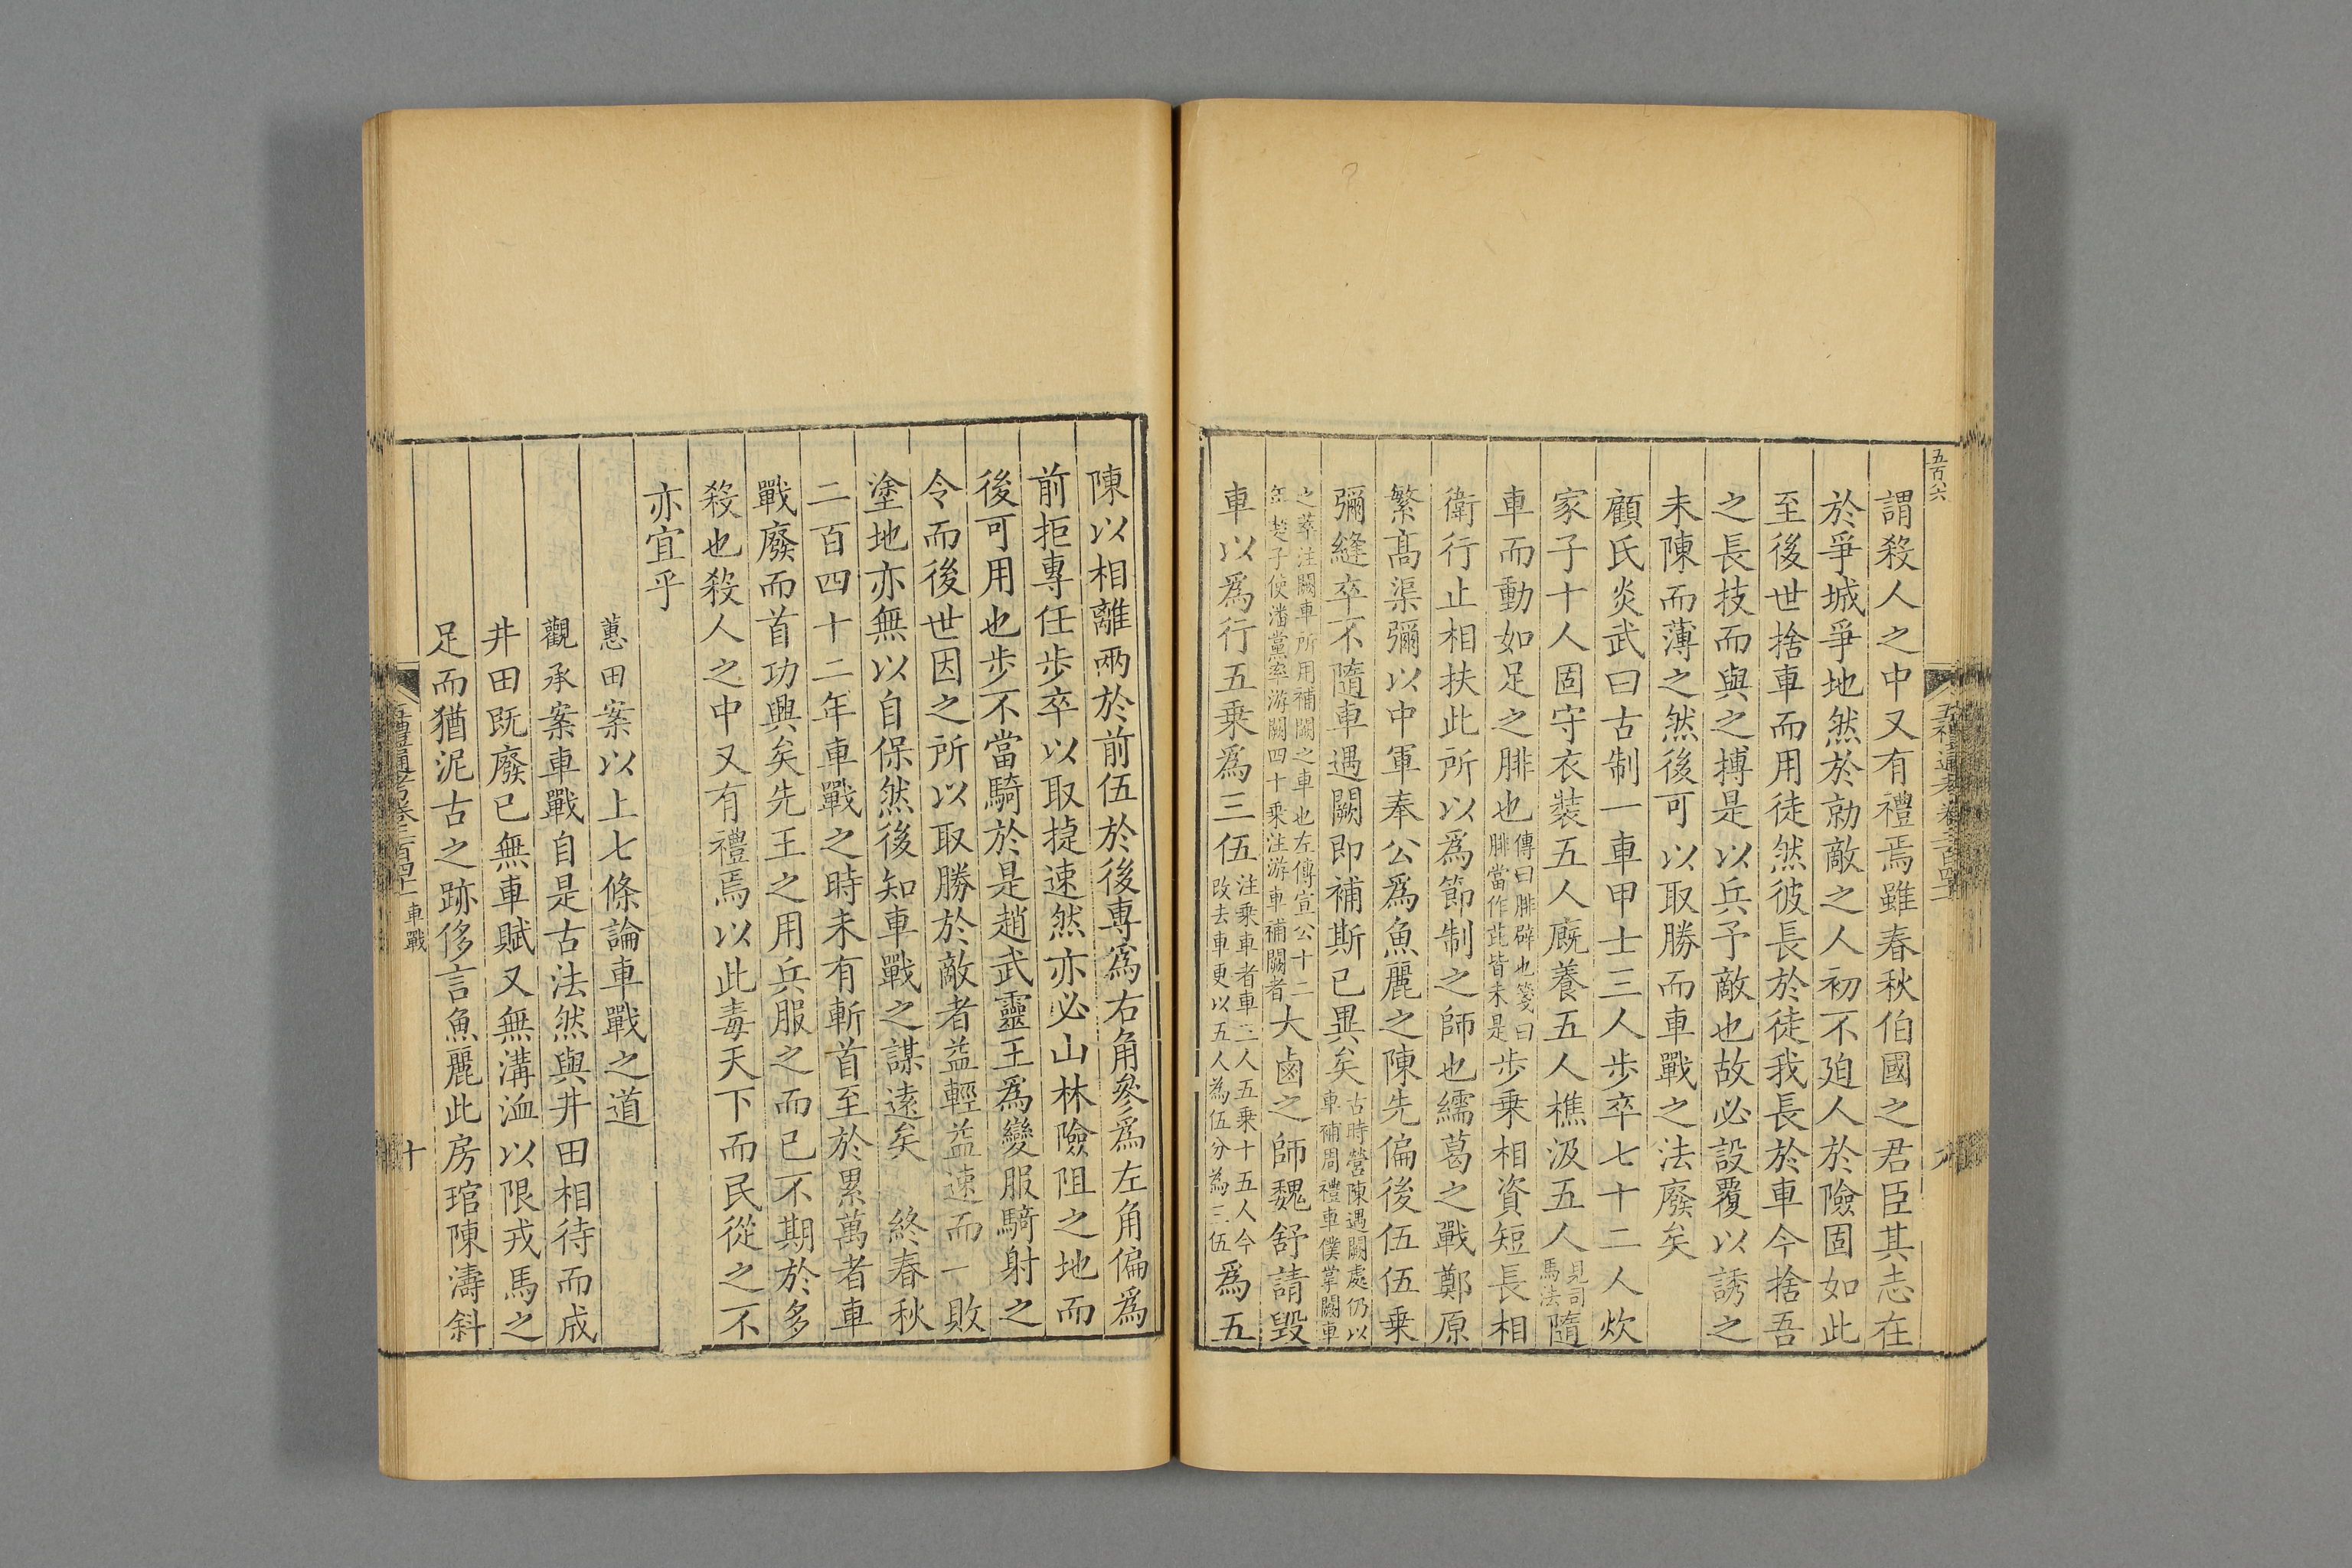 五百八六
五禮通考卷二百四十一
九
謂殺人之中又有禮焉雖春秋伯國之君臣其志在
於爭城爭地然於勍敵之人初不廹人於險固如此
至後世捨車而用徒然彼長於徒我長於車今捨吾
之長技而與之搏是以兵予敵也故必設覆以誘之
未陳而薄之然後可以取勝而車戰之法廢矣
顧氏炎武曰古制一車甲士三人步卒七十二人炊
家子十人固守衣裝五人廐養五人樵汲五人見司馬法隨
車而動如足之腓也傳曰腓辟也箋曰腓當作芘皆未是步乗相資短長相
衛行止相扶此所以爲節制之師也繻葛之戰鄭原
繁髙渠彌以中軍奉公爲魚麗之陳先偏後伍伍乗
彌縫卒不隨車遇闕即補斯已異矣古時營陳遇闕處仍以車補周禮車僕掌闕車
之萃注闕車所用補闕之車也左傳宣公十二年楚子使潘黨率游闕四十乗注游車補闕者大鹵之師魏舒請毀
車以爲行五乗爲三伍注乗車者車三人五乗十五人今改去車更以五人為伍分為三伍爲五
陳以相離兩於前伍於後專爲右角參爲左角偏爲
前拒專任步卒以取㨗速然亦必山林險阻之地而
後可用也步不當騎於是趙武靈王爲變服騎射之
令而後世因之所以取勝於敵者益輕益速而一敗
塗地亦無以自保然後知車戰之謀逺矣 終春秋
二百四十二年車戰之時未有斬首至於累萬者車
戰廢而首功興矣先王之用兵服之而已不期於多
殺也殺人之中又有禮焉以此毒天下而民從之不
亦宜乎
蕙田案以上七條論車戰之道
觀承案車戰自是古法然與井田相待而成
井田既廢已無車賦又無溝洫以限戎馬之
足而猶泥古之跡侈言魚麗此房琯陳濤斜
五禮通考卷二百四十一 車戰
十